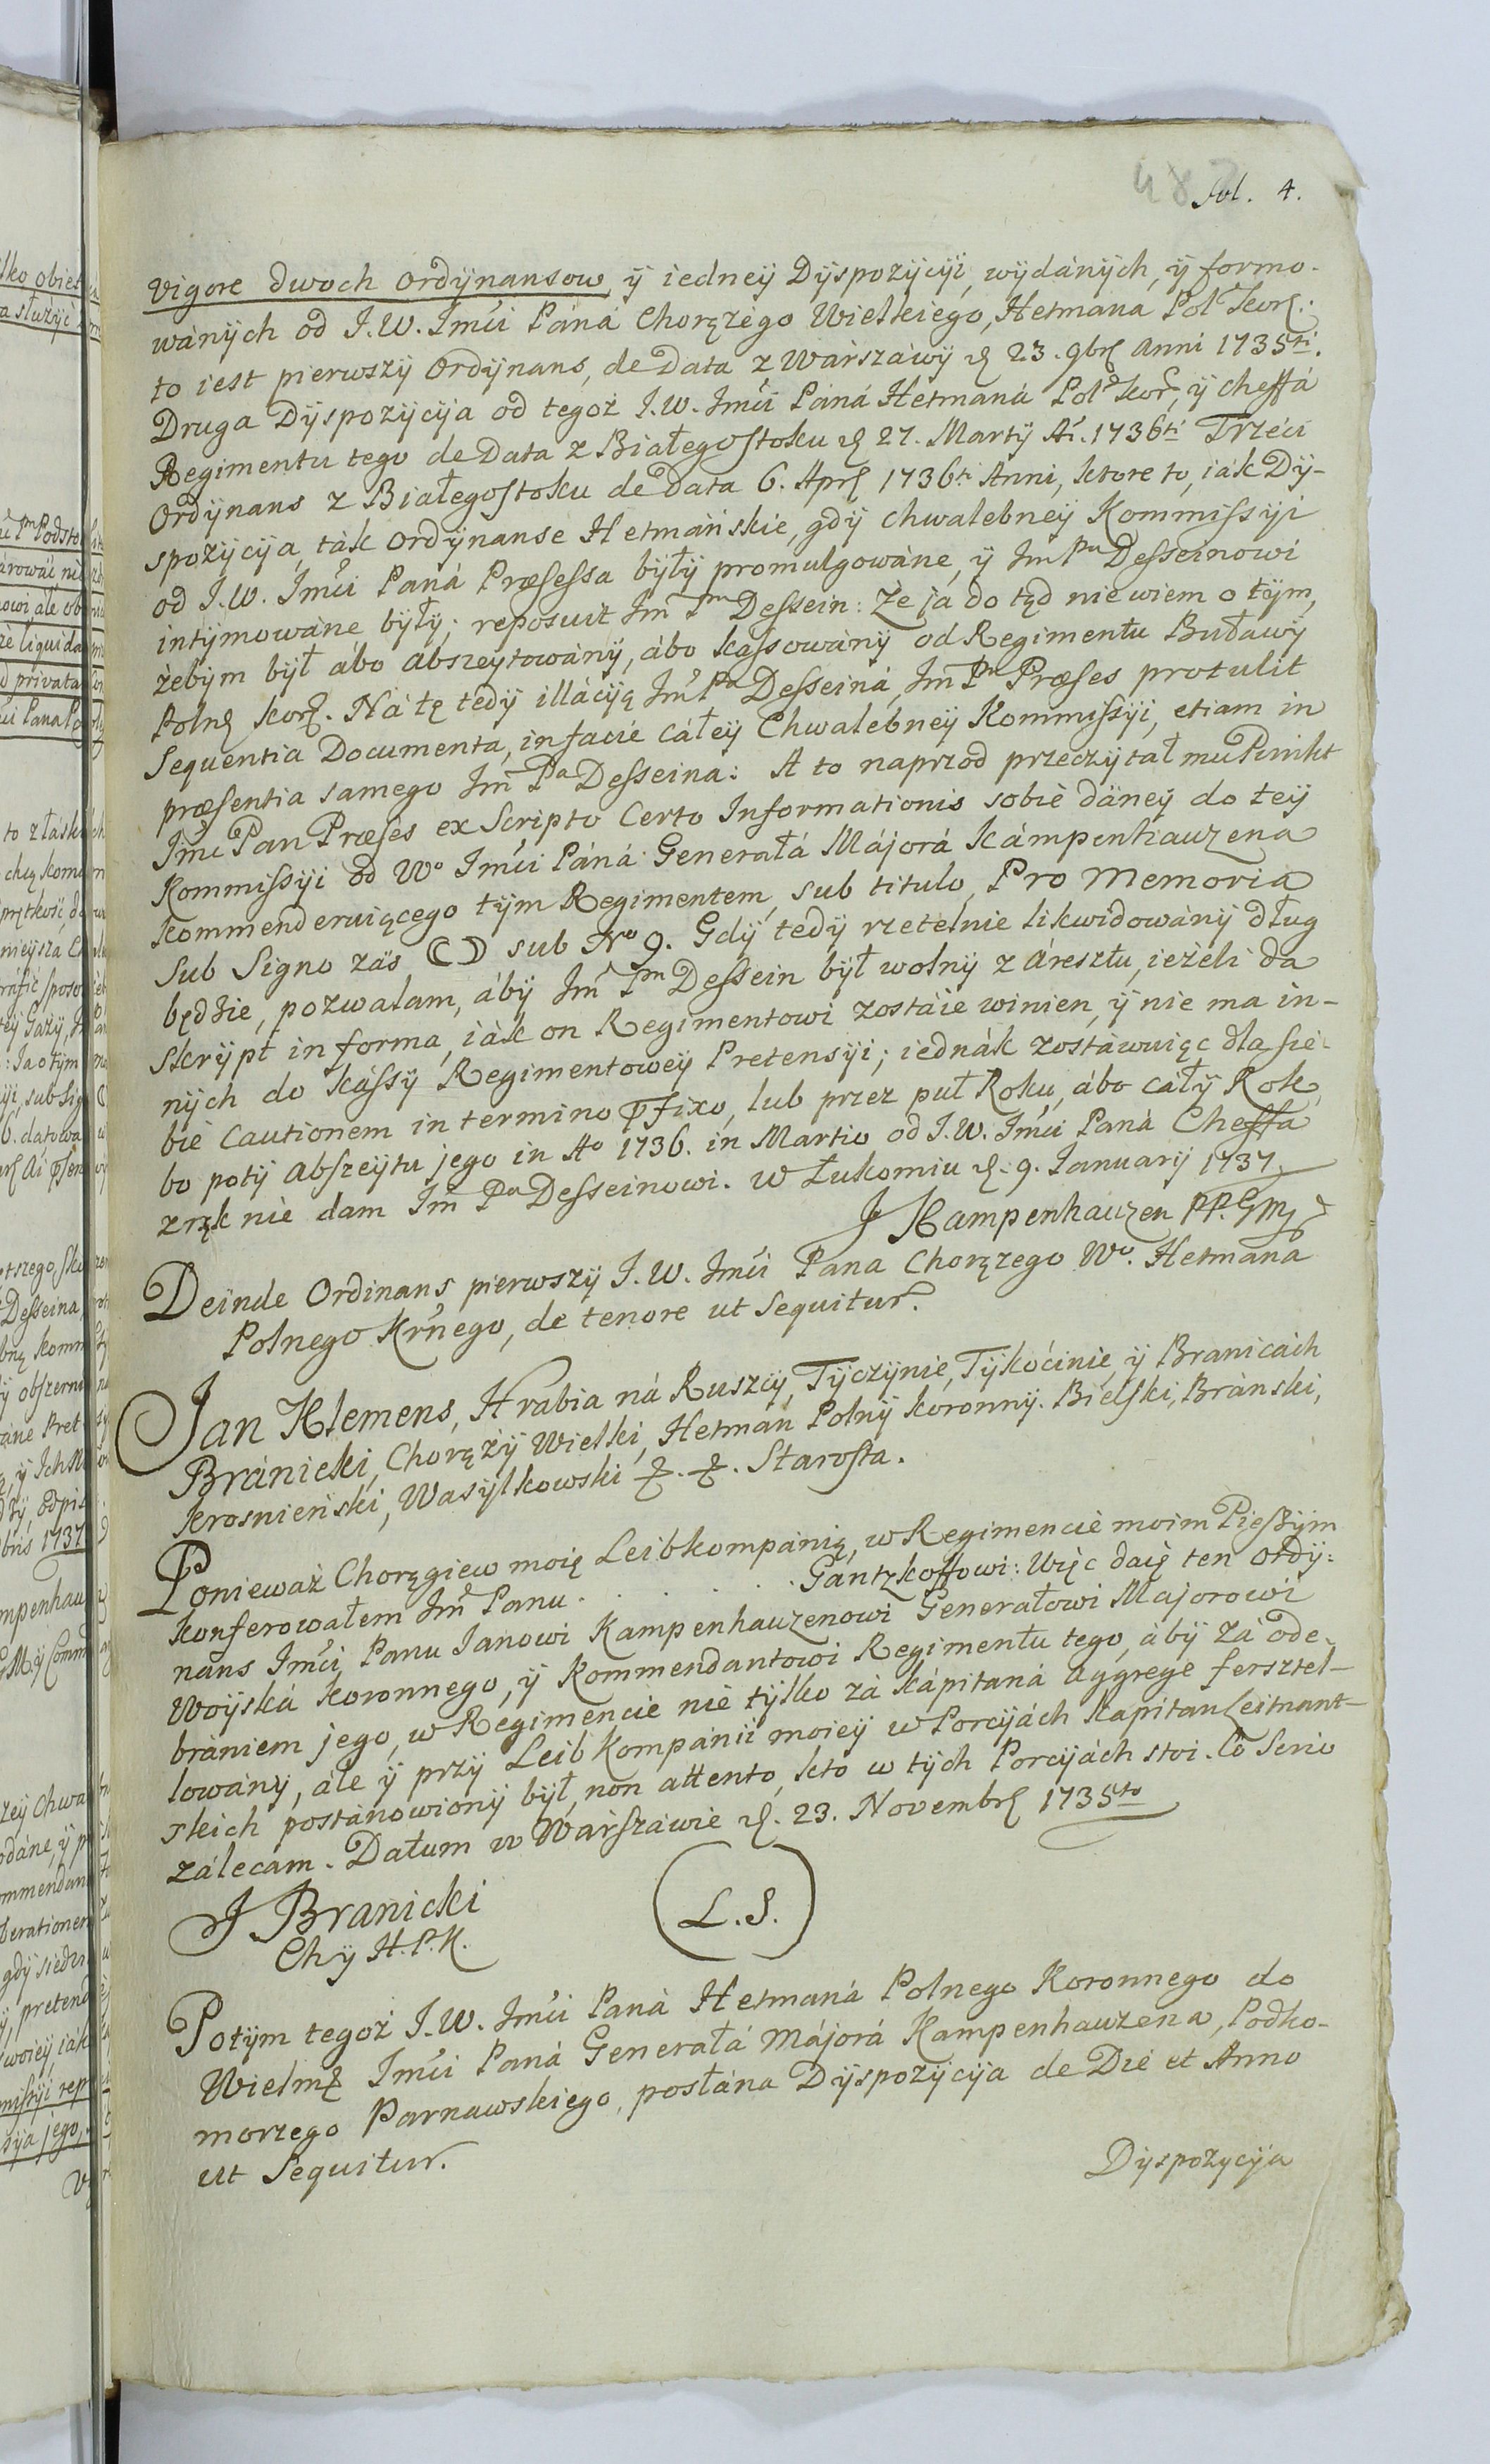 48
fol. 4.
vigore dwoch Ordÿnansow, ÿ iedneÿ Dÿspozÿcÿi, wÿdánÿch, ÿ formo-
wánÿch od J.W. Jmći Páná Chorązego Wielkiego, Hetmana Pol Kor:
to iest pierwszÿ Ordÿnans, de Data z Warszáwÿ d. 23. 9br anni 1735ti.
Druga Dÿspozÿcÿa od tegoż J.W. Jmći Páná Hetmaná Pol Kor, ÿ cheffá
Regimentu tego de Data z Białegostoku d. 27. Martÿ Ai. 1736ti Trzeci
Ordÿnans z Białegostoku de Data 6. Apr 1736ti Anni, ktore to, iák Dÿ-
spozÿcÿa, ták Ordÿnanse Hetmáńskie, gdÿ chwalebneÿ Kommissÿi
od J.W. Jmći Paná Præsessa bÿłÿ promulgowáne, ÿ Jm Pu Desseinowi
intÿmowáne bÿłÿ; reposuit Jm Pn Dessein: Że ja do tąd nie wiem o tÿm,
żebÿm bÿł ábo abszeÿtowánÿ, ábo kassowánÿ od Regimentu Buławÿ
Poln Kor. Ná tę tedÿ illácÿą Jm Pa Desseiná, Jm Pn Præses protulit
Sequentia Documenta, in facie cáłeÿ Chwalebneÿ Kommissÿi, etiam in
præsentia samego Jm Pa Desseina: A to naprzod przeczÿtał mu Punkt
Jmć Pan Præses ex Scripto Certo Informationis sobie dáneÿ do teÿ
Kommissÿi od Wo Jmći Páná Generałá Májorá Kámpenhauzena
kommenderuiącego tÿm Regimentem, sub titulo, Pro Memoria
Sub Signo zás ☾☽ sub No 9. Gdÿ tedÿ rzetelnie likwidowánÿ dług
będzie, pozwalam, ábÿ Jm Pn Dessein bÿł wolnÿ z áresztu, ieżeli da
skrÿpt in forma, iák on Regimentowi zostáie winien, ÿ nie ma in-
nÿch do kássÿ Regimentoweÿ Pretensÿi; iednák zostáwuiąc dla sie-
bie Cautionem in termino pfixo, lub przez puł Roku, ábo cáłÿ Rok,
bo potÿ abszeÿtu jego in Ao 1736. in Martio od J.W. Jmći Paná Cheffá
z rąk nie dam Jm Pu Desseinowi. w Łukomiu d. 9. Januarij 1737.
J Kampenhauzen PP. GM
Deinde Ordinans pierwszÿ J.W. Jmći Pana Chorązego Wo. Hetmaná
Polnego Krnego, de tenore ut sequitur.
Jan Klemens, Hrabia ná Ruszcÿ, Tÿczÿnie, Tÿkoćinie, ÿ Branicách
Bránicki, Chorążÿ Wielki, Hetman Polnÿ Koronnÿ. Bielski, Bránski,
Krosnieński, Wasÿlkowski &. &. Starosta.
Ponieważ Chorągiew moię Leibkompánią, w Regimencie moim Pieszÿm
konferowałem Jm Panu . . . . . Gántzkoffowi: Więc daię ten ordÿ:
nans Jmći Panu Janowi Kampenhauzenowi Generałowi Majorowi
Woÿská Koronnego, ÿ Kommendantowi Regimentu tego, ábÿ zá ode-
braniem jego, w Regimencie nie tÿlko zá kápitaná aggrege fersztel-
lowánÿ, ále ÿ przÿ Leib Kompánii moieÿ w Porcÿách Kapitan Leitnant-
skich postánowionÿ bÿł, non attento, kto w tÿch Porcÿách stoi. Co Serio
zálecam. Datum w Wárszáwie d. 23. Novembr 1735to
J Branicki
Chÿ H.P.K.
L.S.
Potÿm tegoż J.W. Jmći Paná Hetmaná Polnego Koronnego do
Wielm Jmći Paná Generałá Májorá Kampenhauzena, Podko-
morzego Parnawskiego, posłána Dÿspozÿcÿa de Die et Anno
ut Sequitur.
Dÿspozycÿa